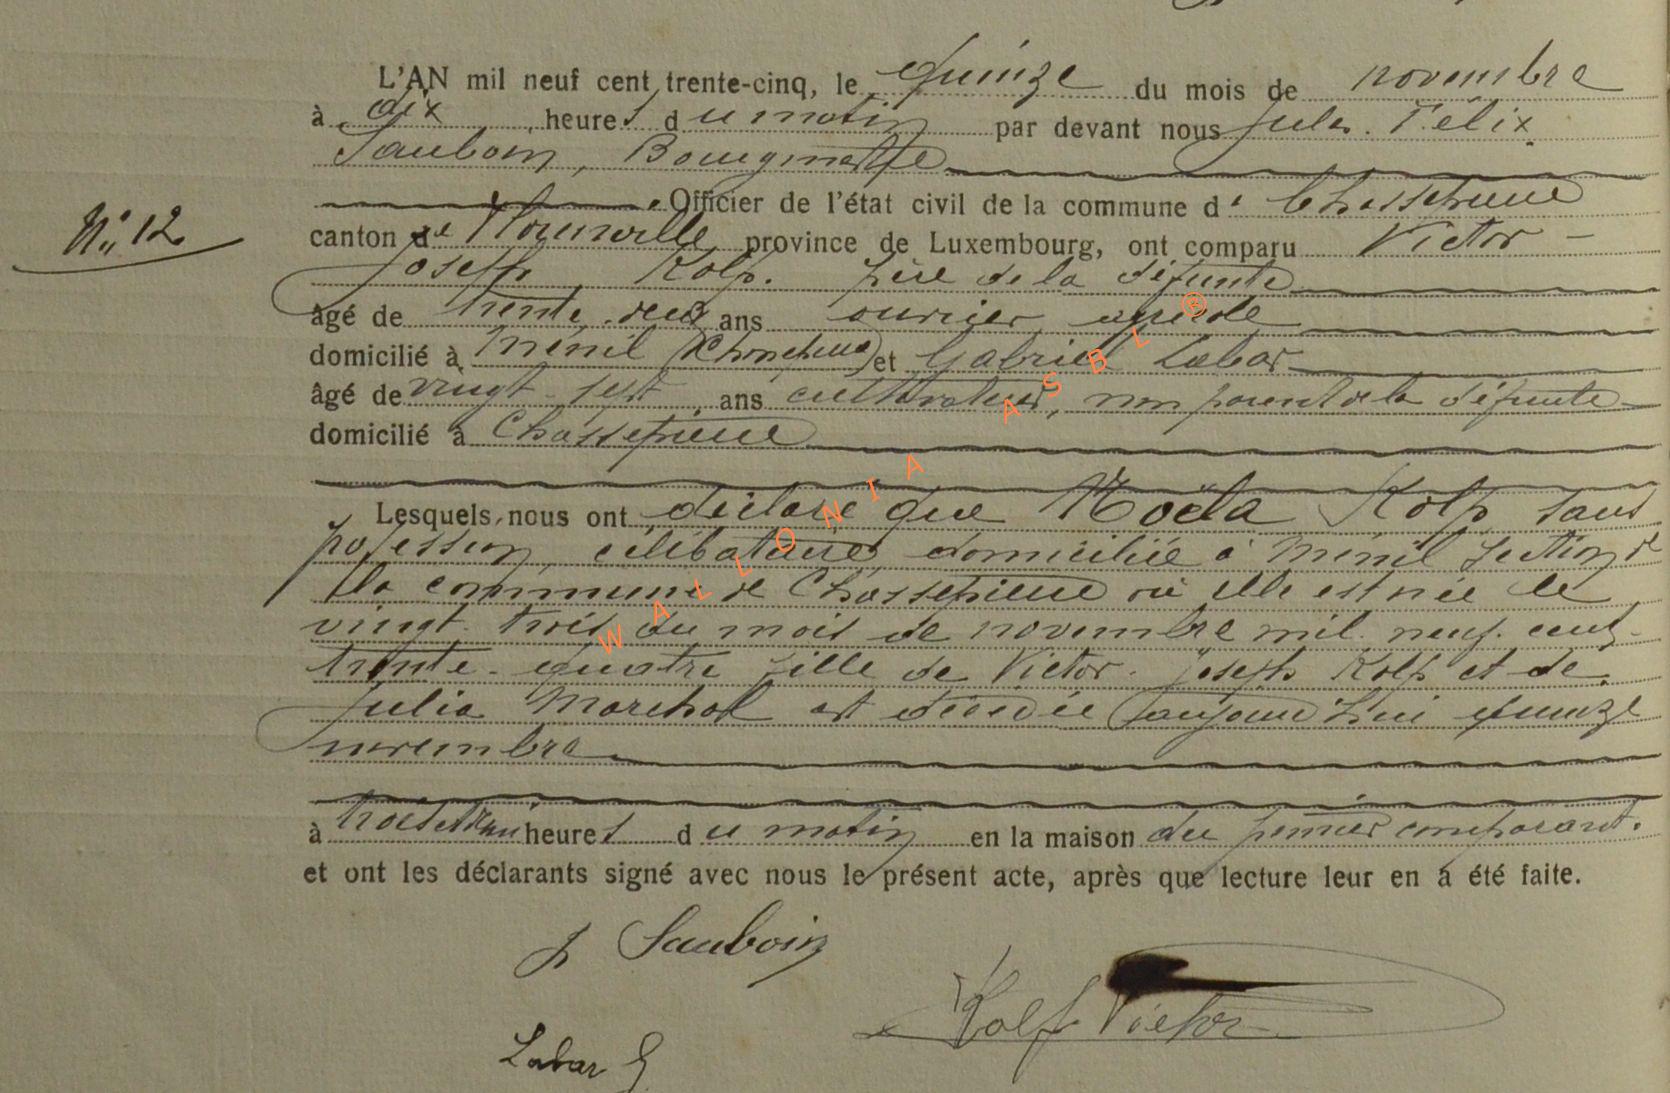 L'AN mil neuf cent trente-cinq, le quinze du mois de novembre
à dix heures du matin par devant nous Jules Félix
Sauboin, Bourgmestre
N° 12
Officier de l'état civil de la commune de Chassepierre
canton de Florenville, province de Luxembourg, ont comparu Victor -
Joseph Kolp. père de la défunte
âgé de trente-deux ans ouvrier agricole
domicilié à Ménil (Chassepierre) et Gabriel Labar
âgé de vingt-sept ans cultivateur, non parent de la défunte
domicilié à Chassepierre
Lesquels nous ont déclaré que Noëla Kolp sans
profession célibataire, domiciliée à Ménil section de
la commune de Chassepierre où elle est née le
vingt-trois du mois de novembre mil neuf cent
trente-quatre fille de Victor-Joseph Kolp et de
Julia Marchal est décédée aujourd'hui quinze
novembre
à heures du matin en la maison du premier comparant.
et ont les déclarants signé avec nous le présent acte, après que lecture leur en a été faite.
J Sauboin
Kolp Victor
Labar G
WALLONIA ASBL ®